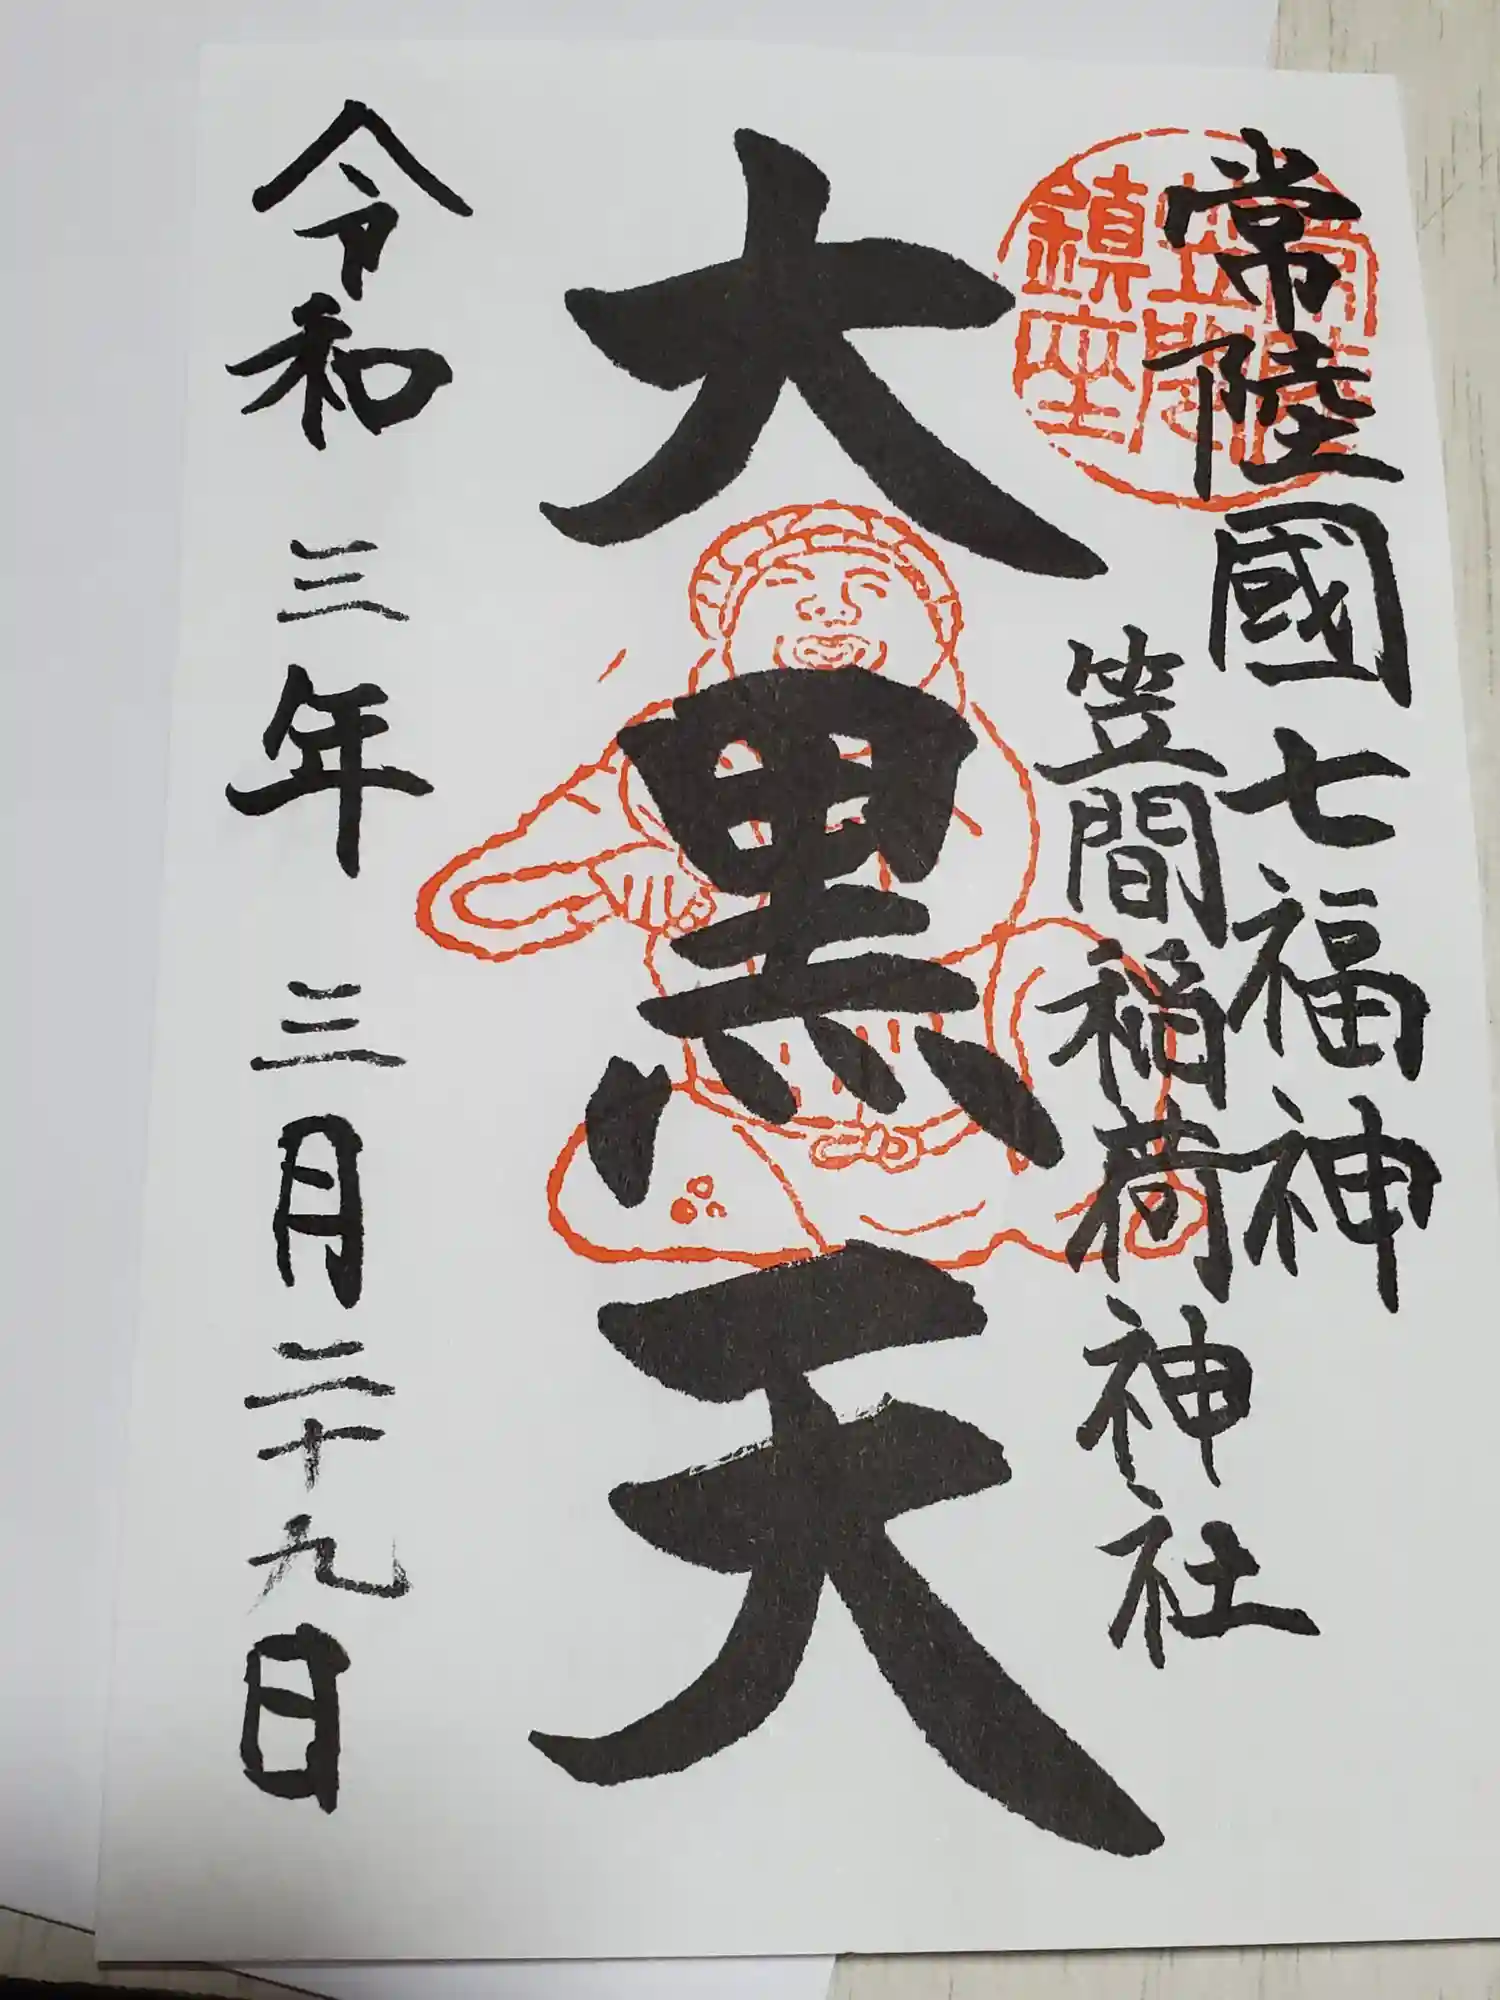 常陸國七福神
笠間稲荷神社
常陸
笠間
鎮座
大黒天
令和三年三月二十九日